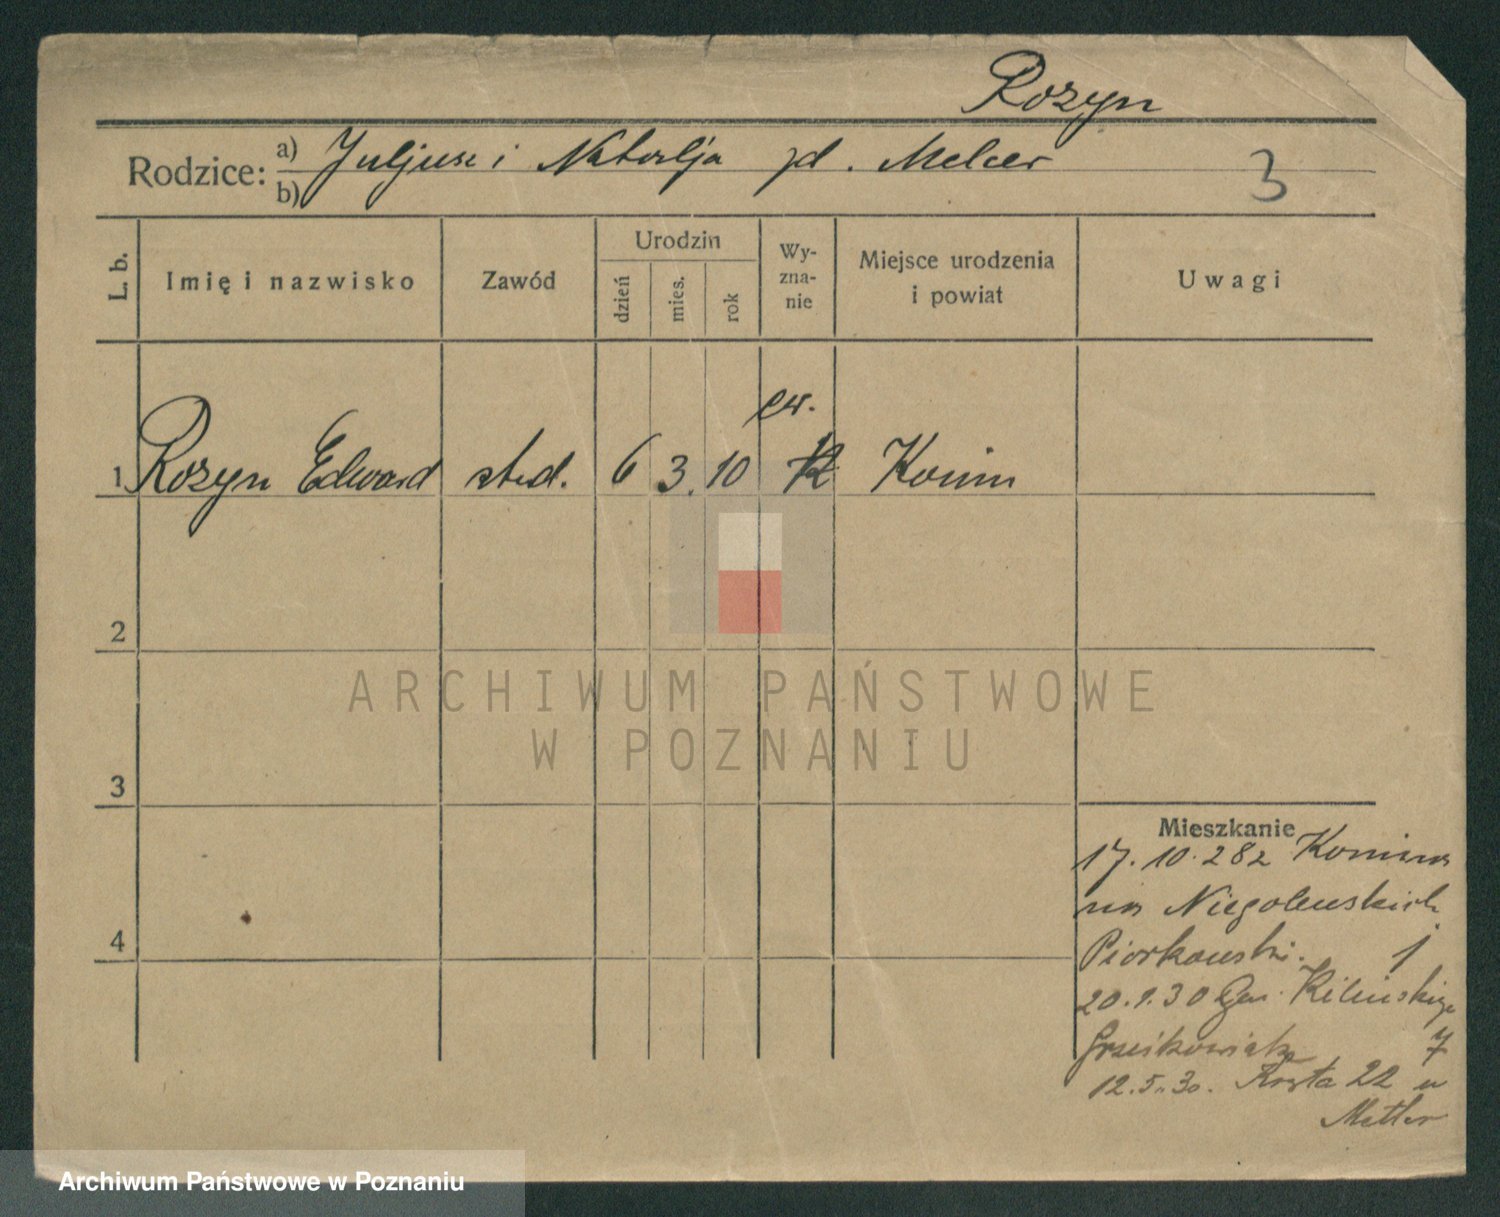 Rozyn
Rodzice: a) Juljusz i Natalja zd. Melcer
b)
3
L. b.
Imię i nazwisko
Zawód
Urodzin
dzień
mies.
rok
Wy-
zna-
nie
Miejsce urodzenia
i powiat
Uwagi
ew.
1 Rozyn Edward stud. 6 3. 10 k Konin
2
3
4
Mieszkanie
17. 10. 28 z Konina
na Niegolewskich
Piorkowski. 1
20. 1. 30 Kilińskiego
Grześkowiak 7
12. 5. 30. Kręta 22 u
Metler
ARCHIWUM PAŃSTWOWE
W POZNANIU
Archiwum Państwowe w Poznaniu